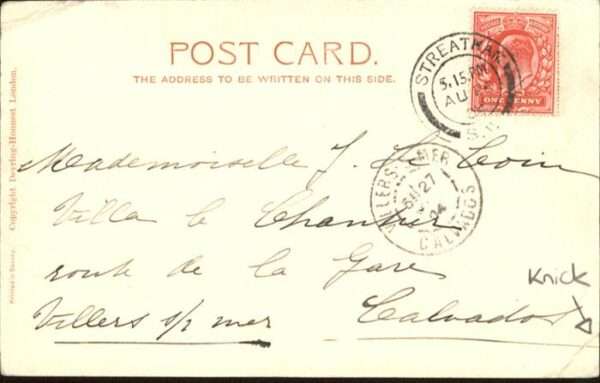 POST CARD.
THE ADDRESS TO BE WRITTEN ON THIS SIDE.
STREATHAM
5.15 PM
AU
S.W
ONE PENNY
Mademoiselle J. Le
VILLERS S MER
27
04
CALVADOS
Villa le
route de la Gare
Villers s/ mer
Calvados
Knick
Copyright London.
Printed in